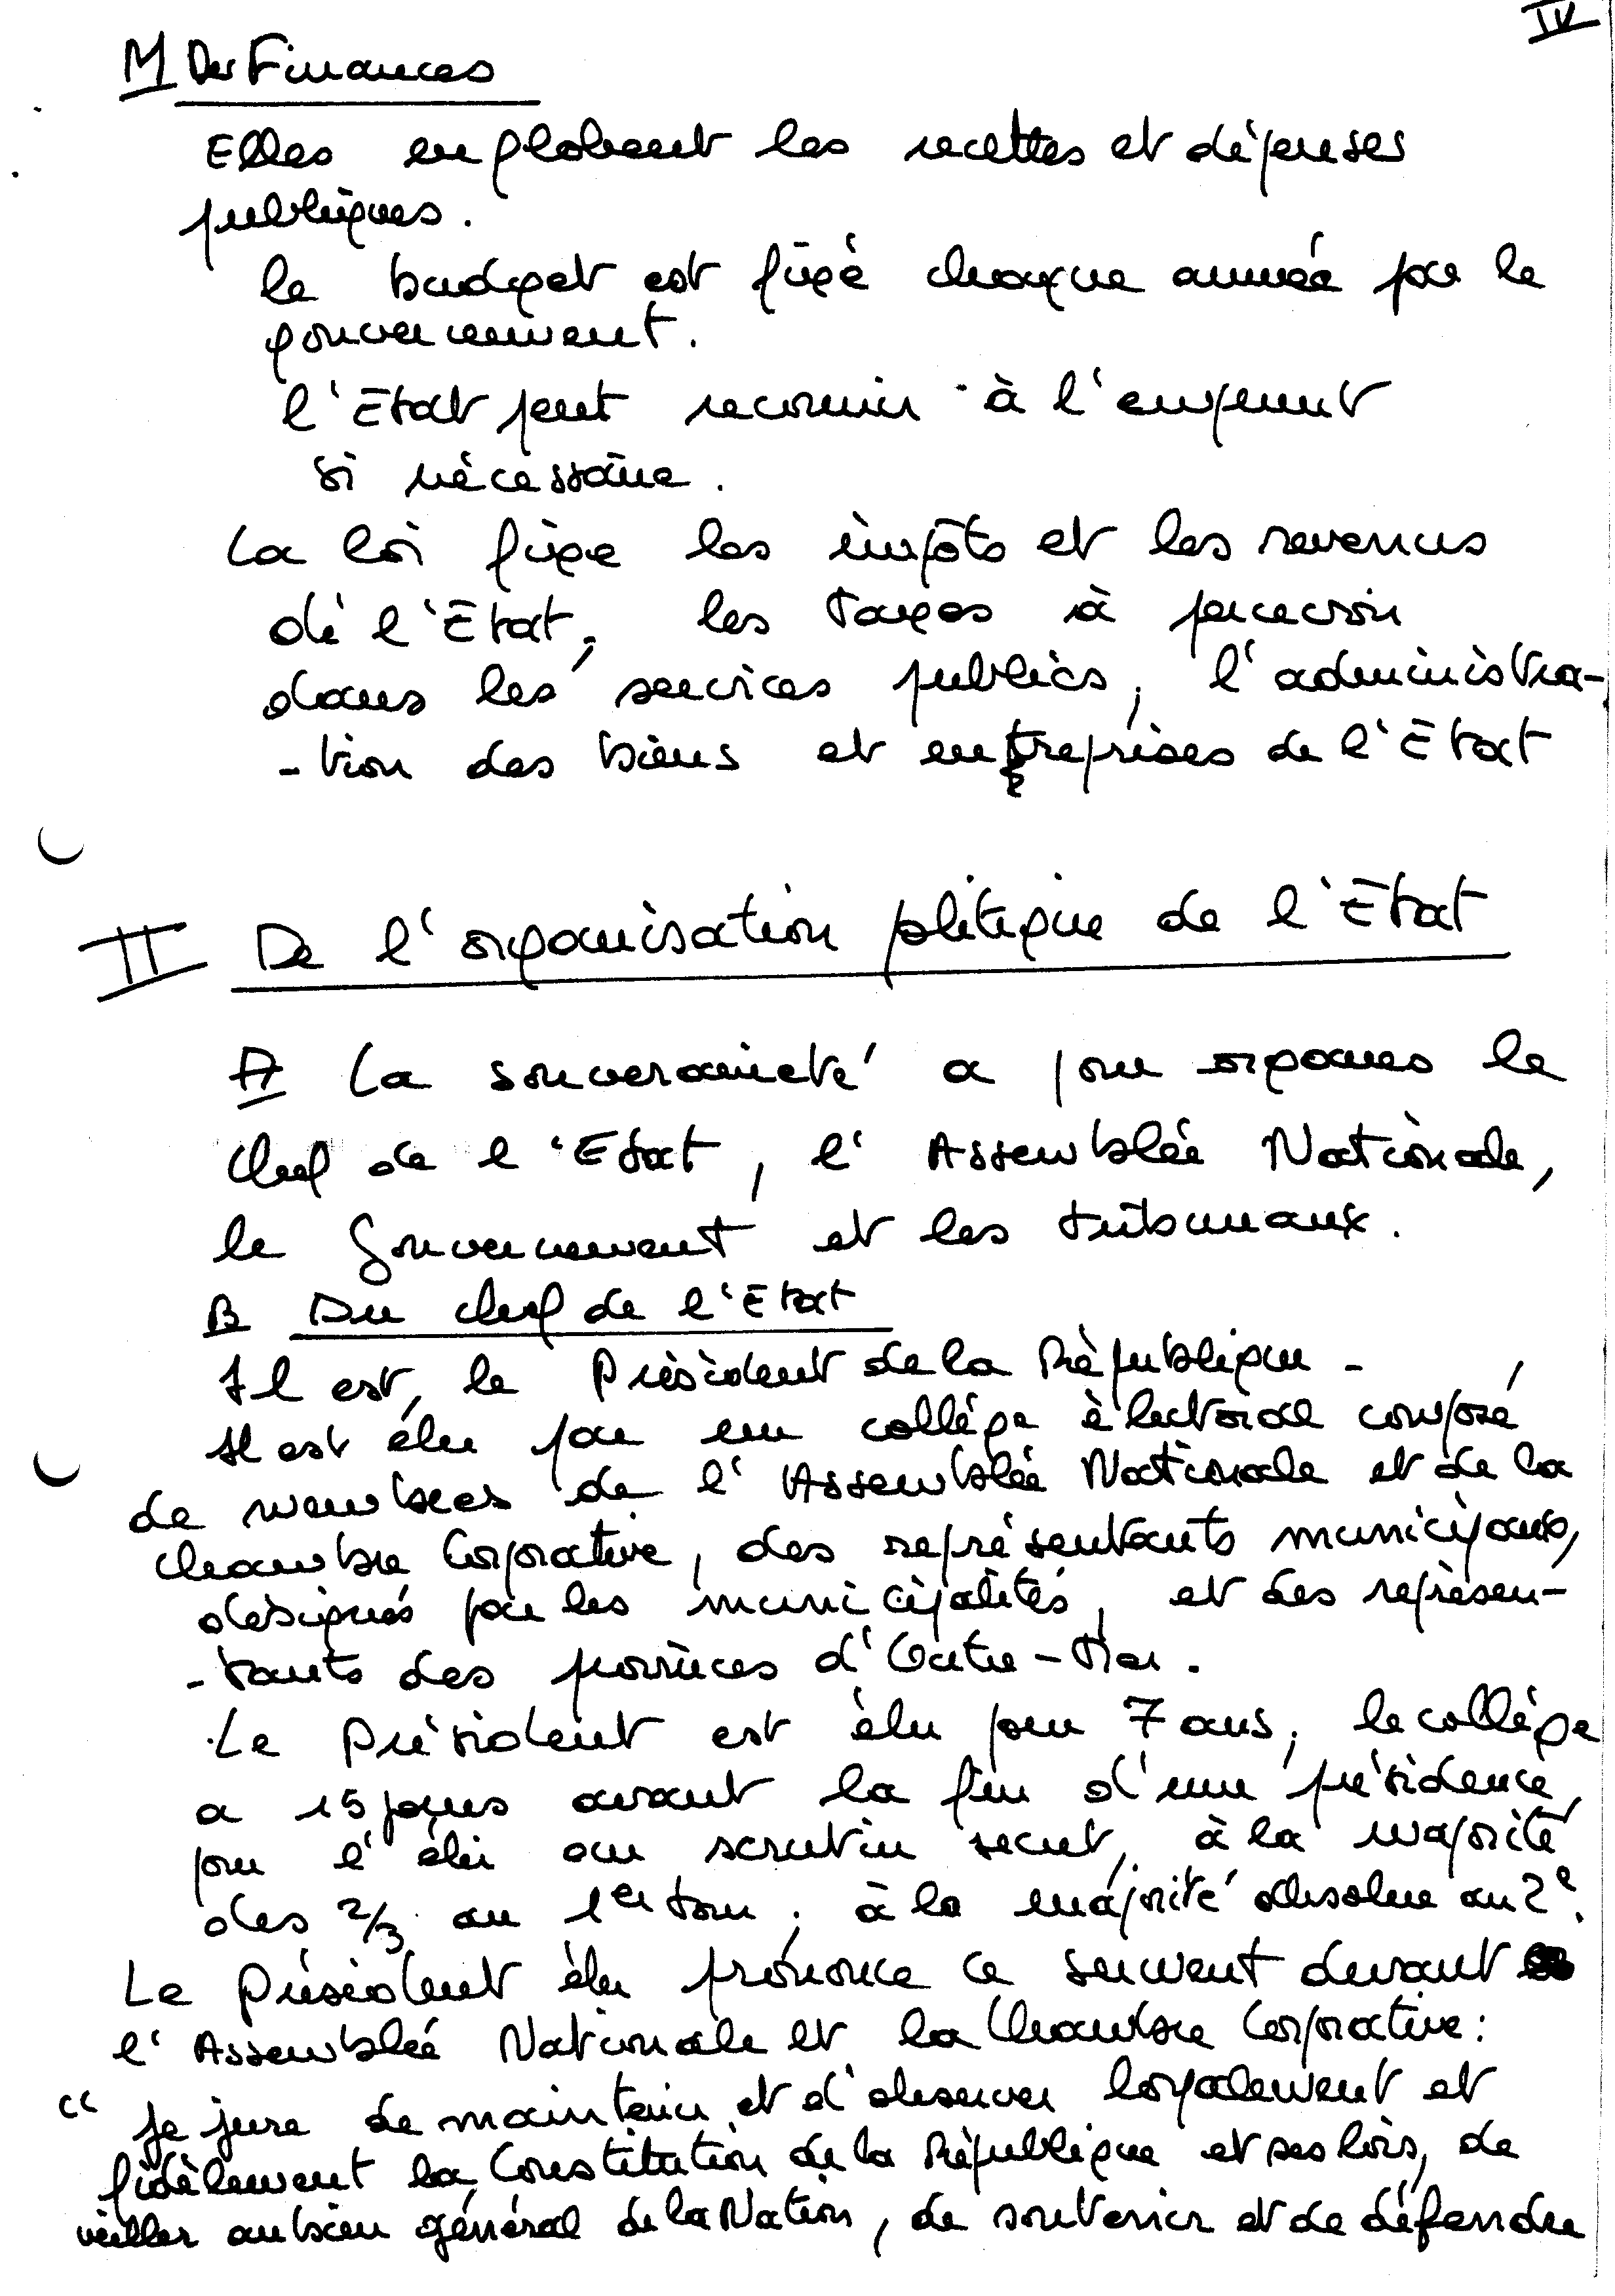 IV
M Des Finances
Elles englobent les recettes et dépenses
publiques.
le budget est fixé chaque année par le
gouvernement.
l'Etat peut recourir à l'emprunt
si nécessaire.
La loi fixe les impôts et les revenus
de l'Etat, les taxes à percevoir
dans les services publics, l'administra-
-tion des biens et entreprises de l'Etat
II De l'organisation politique de l'Etat
A La souveraineté a pour organes le
Chef de l'Etat, l'Assemblée Nationale,
le Gouvernement et les tribunaux.
B Du chef de l'Etat
Il est, le Président de la République -
Il est élu par un collège électoral composé
de membres de l'Assemblée Nationale et de la
Chambre Corporative, des représentants municipaux,
désignés par les municipalités, et des représen-
-tants des provinces d'Outre-Mer.
Le Président est élu pour 7 ans, le collège
a 15 jours avant la fin d'une présidence
pour l'élir au scrutin secret, à la majorité
des 2/3 au 1er tour, à la majorité absolue au 2e.
Le Président élu prononce ce serment devant
l'Assemblée Nationale et la Chambre Corporative:
"Je jure de maintenir et d'observer loyalement et
fidèlement la Constitution de la République et ses lois, de
veiller au bien général de la Nation, de soutenir et de défendre